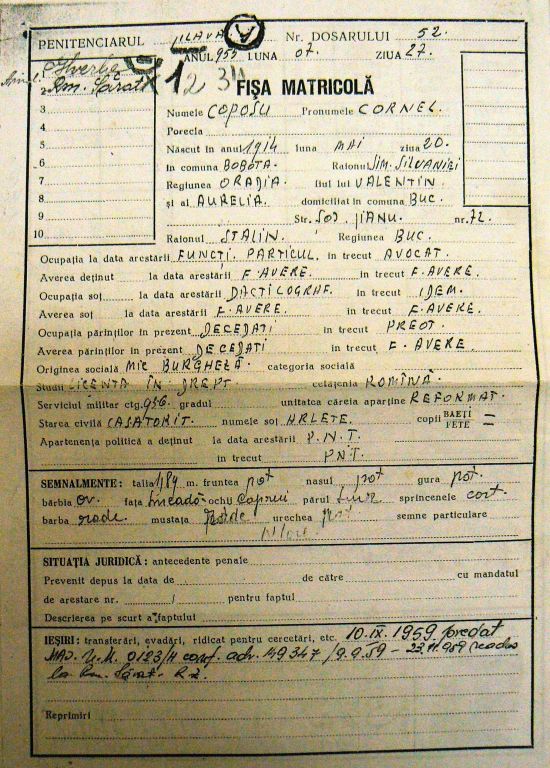 PENITENCIARUL JILAVA A Nr. DOSARULUI 52.
ANUL 955 LUNA 07. ZIUA 27.
1 2
2 Rm. Sărat
3
4
5
6
7
8
9
10
FIŞA MATRICOLĂ
Numele COPOSU Pronumele CORNEL.
Porecla
Născut în anul 1914 luna MAI ziua 20.
în comuna BOBOTA. Raionul SIM. SILVANIEI
Regiunea ORADIA. fiul lui VALENTIN
şi al AURELIA. domiciliat în comuna BUC.
Str. nr. 72.
Raionul STALIN. Regiunea BUC.
Ocupaţia la data arestării FUNCŢ. PARTICUL. în trecut AVOCAT.
Averea deţinut la data arestării F. AVERE. în trecut F. AVERE.
Ocupaţia soţ la data arestării DACTILOGRAF. în trecut IDEM.
Averea soţ la data arestării F. AVERE. în trecut F. AVERE.
Ocupaţia părinţilor în prezent DECEDAŢI în trecut PREOT.
Averea părinţilor în prezent DECEDAŢI în trecut F. AVERE
Originea socială MIC BURGHEZĂ categoria socială
Studii LICENŢA ÎN DREPT cetăţenia ROMÎNĂ.
Serviciul militar ctg. 936. gradul unitatea căreia aparţine REFORMAT.
Starea civilă CASATORIT. numele soţ ARLETE. copii BAEŢI FETE =
Apartenenţa politică a deţinut la data arestării P.N.T.
în trecut PNT.
SEMNALMENTE: talia 1,89 m. fruntea pot nasul pot gura pot.
bărbia ov. faţa ochii căprui părul sprincenele
barba rade mustaţa rade urechea pot semne particulare
SITUAŢIA JURIDICĂ: antecedente penale
Prevenit depus la data de de către cu mandatul
de arestare nr. / pentru faptul
Descrierea pe scurt a faptului
IEŞIRI: transferări, evadări, ridicat pentru cercetări, etc. 10.IX.1959. predat
MAJ. U.M. 0123/H conf. adr. 49347/9.9.59 - readus
la Rm. Sărat.
Reprimiri